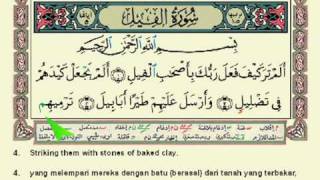 سُورَةُ الْفِيلِ
بِسْمِ اللَّهِ الرَّحْمَٰنِ الرَّحِيمِ
أَلَمْ تَرَ كَيْفَ فَعَلَ رَبُّكَ بِأَصْحَابِ الْفِيلِ ١ أَلَمْ يَجْعَلْ كَيْدَهُمْ
فِي تَضْلِيلٍ ٢ وَأَرْسَلَ عَلَيْهِمْ طَيْرًا أَبَابِيلَ ٣ تَرْمِيهِم
4. Striking them with stones of baked clay.
4. yang melempari mereka dengan batu (berasal) dari tanah yang terbakar,